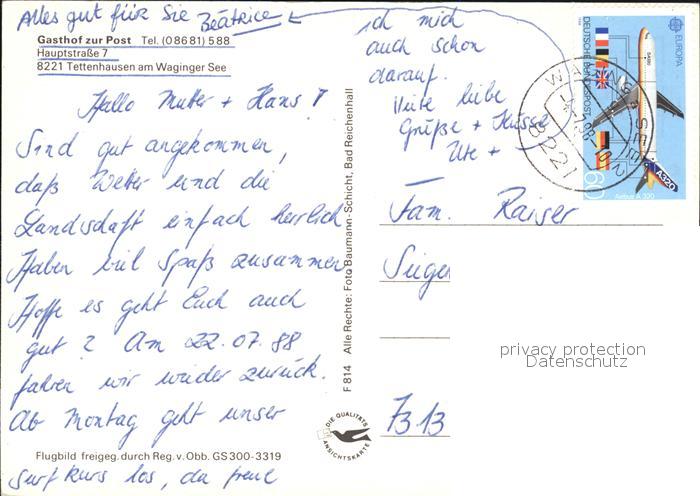 Alles gut für Sie Béatrice
Gasthof zur Post Tel. (08681) 588
Hauptstraße 7
8221 Tettenhausen am Waginger See
Hallo Mutter + Hans!
Sind gut angekommen,
daß Wetter und die
Landschaft einfach herrlich
Haben viel Spaß zusammen
Hoffe es geht Euch auch
gut? Am 22.07.88
fahren wir wieder zurück.
Ab Montag geht unser
Flugbild freigeg. durch Reg. v. Obb. GS 300-3319
Surfkurs los, da freue
ich mich
auch schon
darauf.
Viele liebe
Grüße + Küsse
Ute +
F 814 Alle Rechte: Foto Baumann-Schicht, Bad Reichenhall
DIE QUALITÄTS
ANSICHTSKARTE
DEUTSCHE BUNDESPOST
EUROPA
60
A320
Airbus A 320
8221
Fam. Raiser
7313
privacy protection
Datenschutz